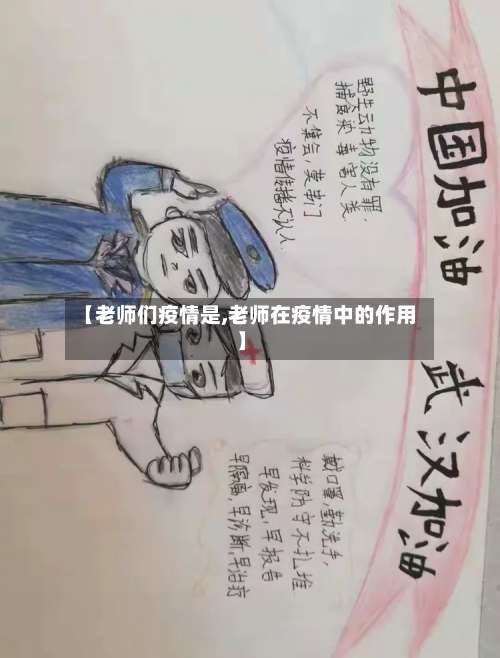 中国加油 武汉加油
野生动物没有罪,
捕食染毒害人类
不集会,莫串门
疫情传播不认人
【老师们疫情是,老师在疫情中的作用
】
戴口罩,勤洗手,
科学防守不扎堆
早发现,早报告
早隔离,早诊断,早治疗